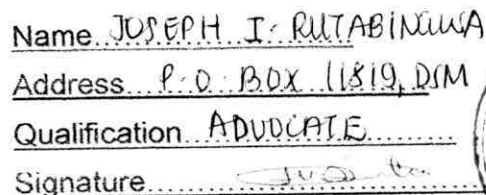 Name...JOSEPH I. RUTABINGWA
Address...P.O. BOX 11819, DSM
Qualification...ADVOCATE
Signature...